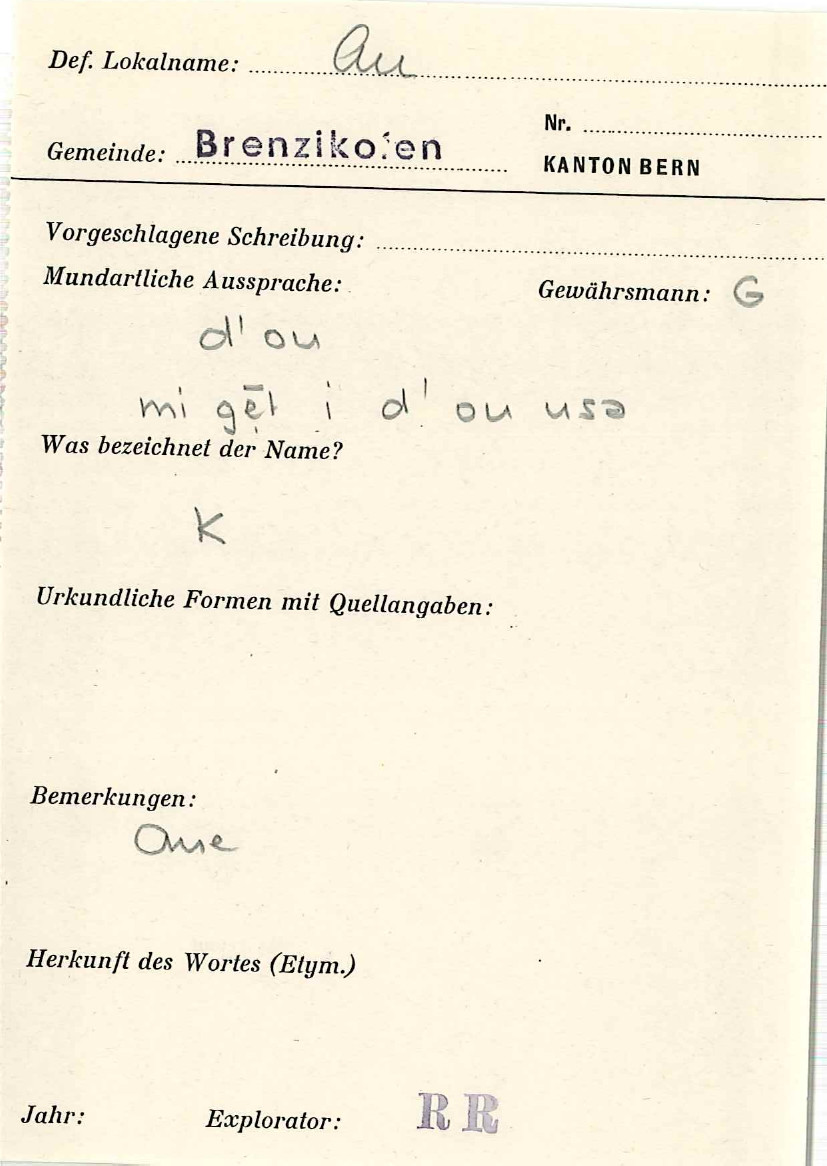 Def. Lokalname: Au
Nr.
Gemeinde: Brenzikofen
KANTON BERN
Vorgeschlagene Schreibung:
Mundartliche Aussprache: Gewährsmann: G
d' ou
mi gē̩t i d' ou usə
Was bezeichnet der Name?
K
Urkundliche Formen mit Quellangaben:
Bemerkungen:
Oue
Herkunft des Wortes (Etym.)
Jahr: Explorator: RR